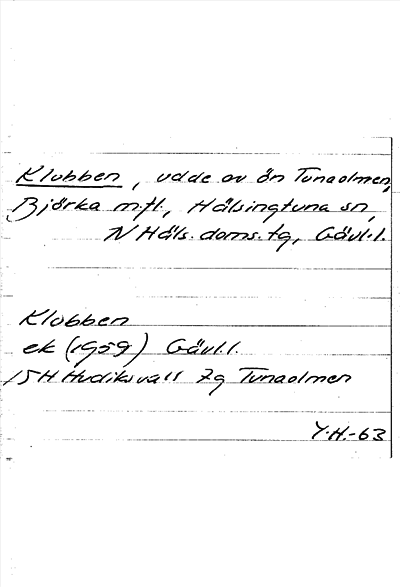 Klubben, udde av ön Tunaolmen,
Björka m.fl., Hälsingtuna sn,
N Häls. doms. tg, Gävl.l.
Klubben
ek (1959) Gävl.l.
15H Hudiksvall 7g Tunaolmen
Y.H.-63